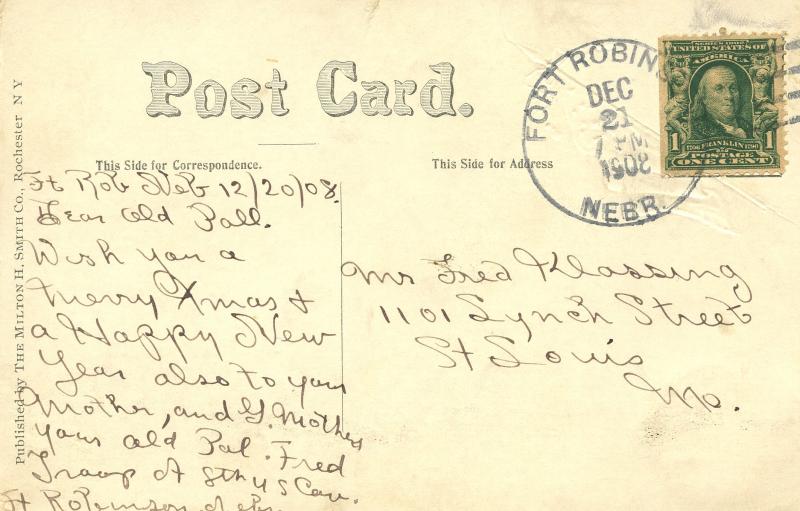 Post Card.
This Side for Correspondence.
This Side for Address
Published by THE MILTON H. SMITH CO., Rochester N Y
FORT ROBINS
NEBR.
DEC
21
7 PM
1908
SERIES 1902
UNITED STATES OF
AMERICA
1706 FRANKLIN 1790
1 1
POSTAGE
ONE CENT
Ft Rob Neb 12/20/08.
Dear Old Pall.
Wish you a
Merry Xmas &
a Happy New
Year also to your
Mother, and G. Mother
your old Pal. Fred
Troop A 8th U S Cav.
Ft Robinson Nebr.
Mr Fred Klassing
1101 Lynch Street
St Louis
Mo.